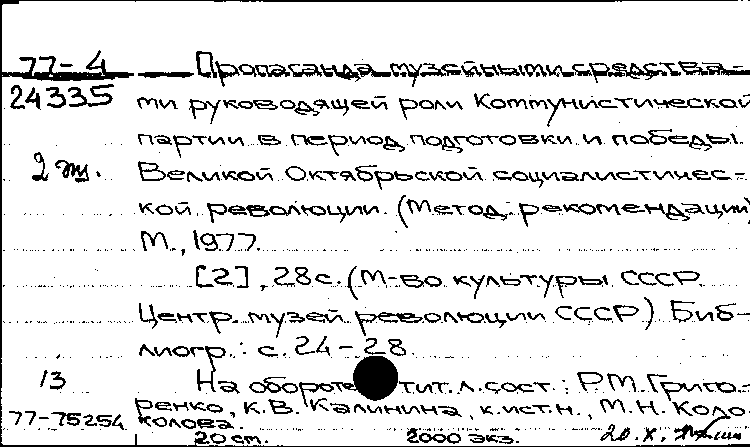 77-4 Пропаганда музейными средства-
24335 ми руководящей роли Коммунистической
партии в период подготовки и победы
2 эк. Великой Октябрьской социалистичес-
кой революции. (Метод. рекомендации)
М., 1977.
[2], 28 с. (М-во культуры СССР.
Центр. музей революции СССР) Биб-
лиогр.: с. 24-28
13 На обороте тит. л. сост.: Р.М. Григо-
ренко, к.В. Калинина, к.ист.н., М.Н. Коло
77-75254 колова.
20 см. 2000 экз. 20.X.